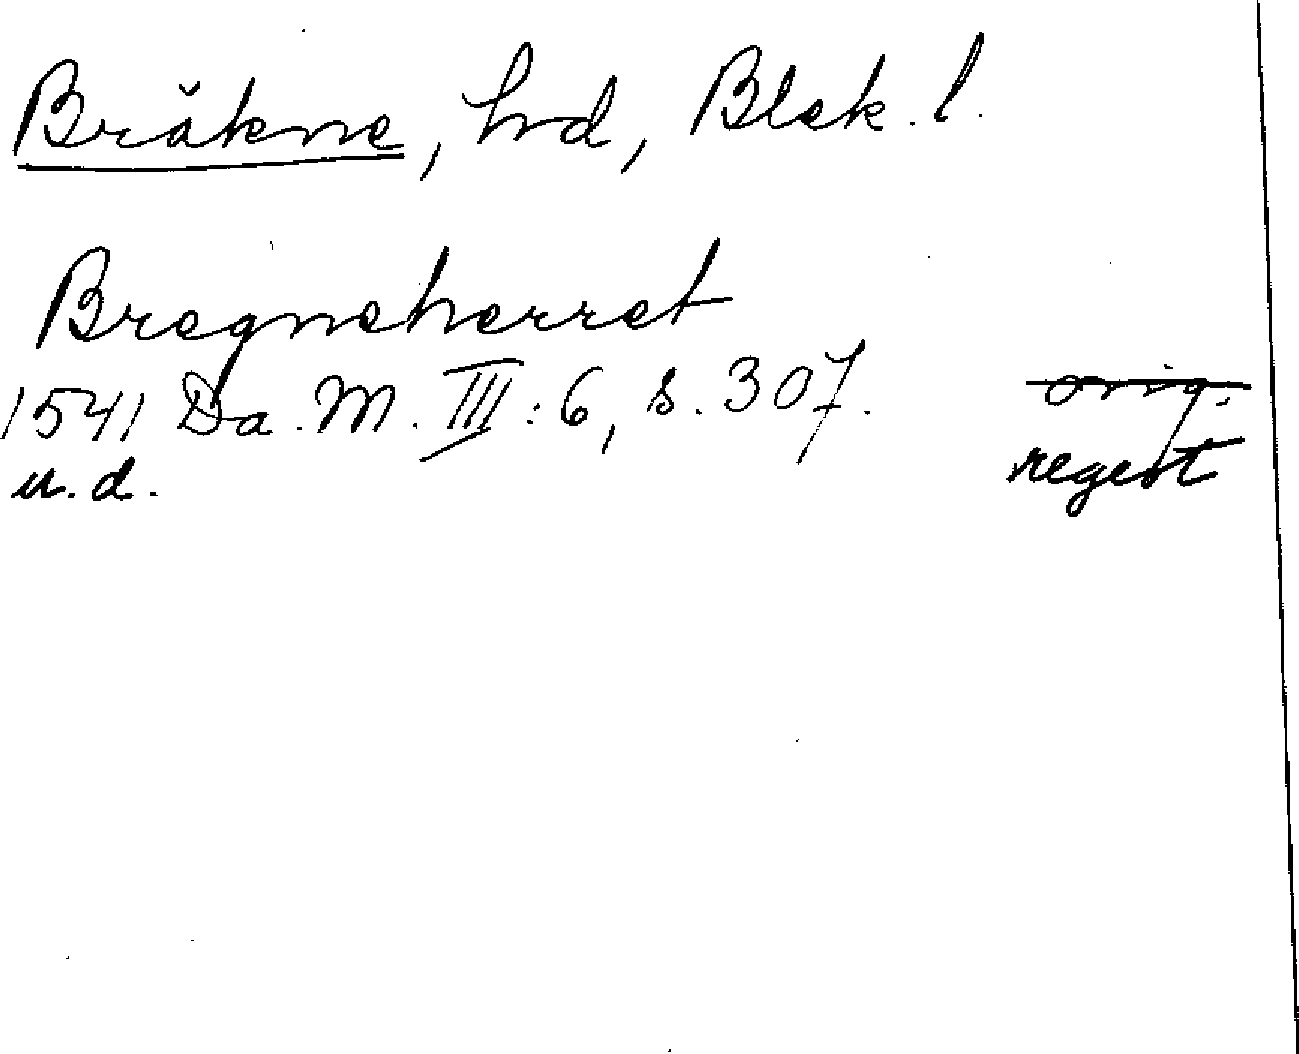 Bräkne, hrd, Blek. l.
Bregneherret
1541 Da. M. III:6, s. 307. orig.
u. d. regest